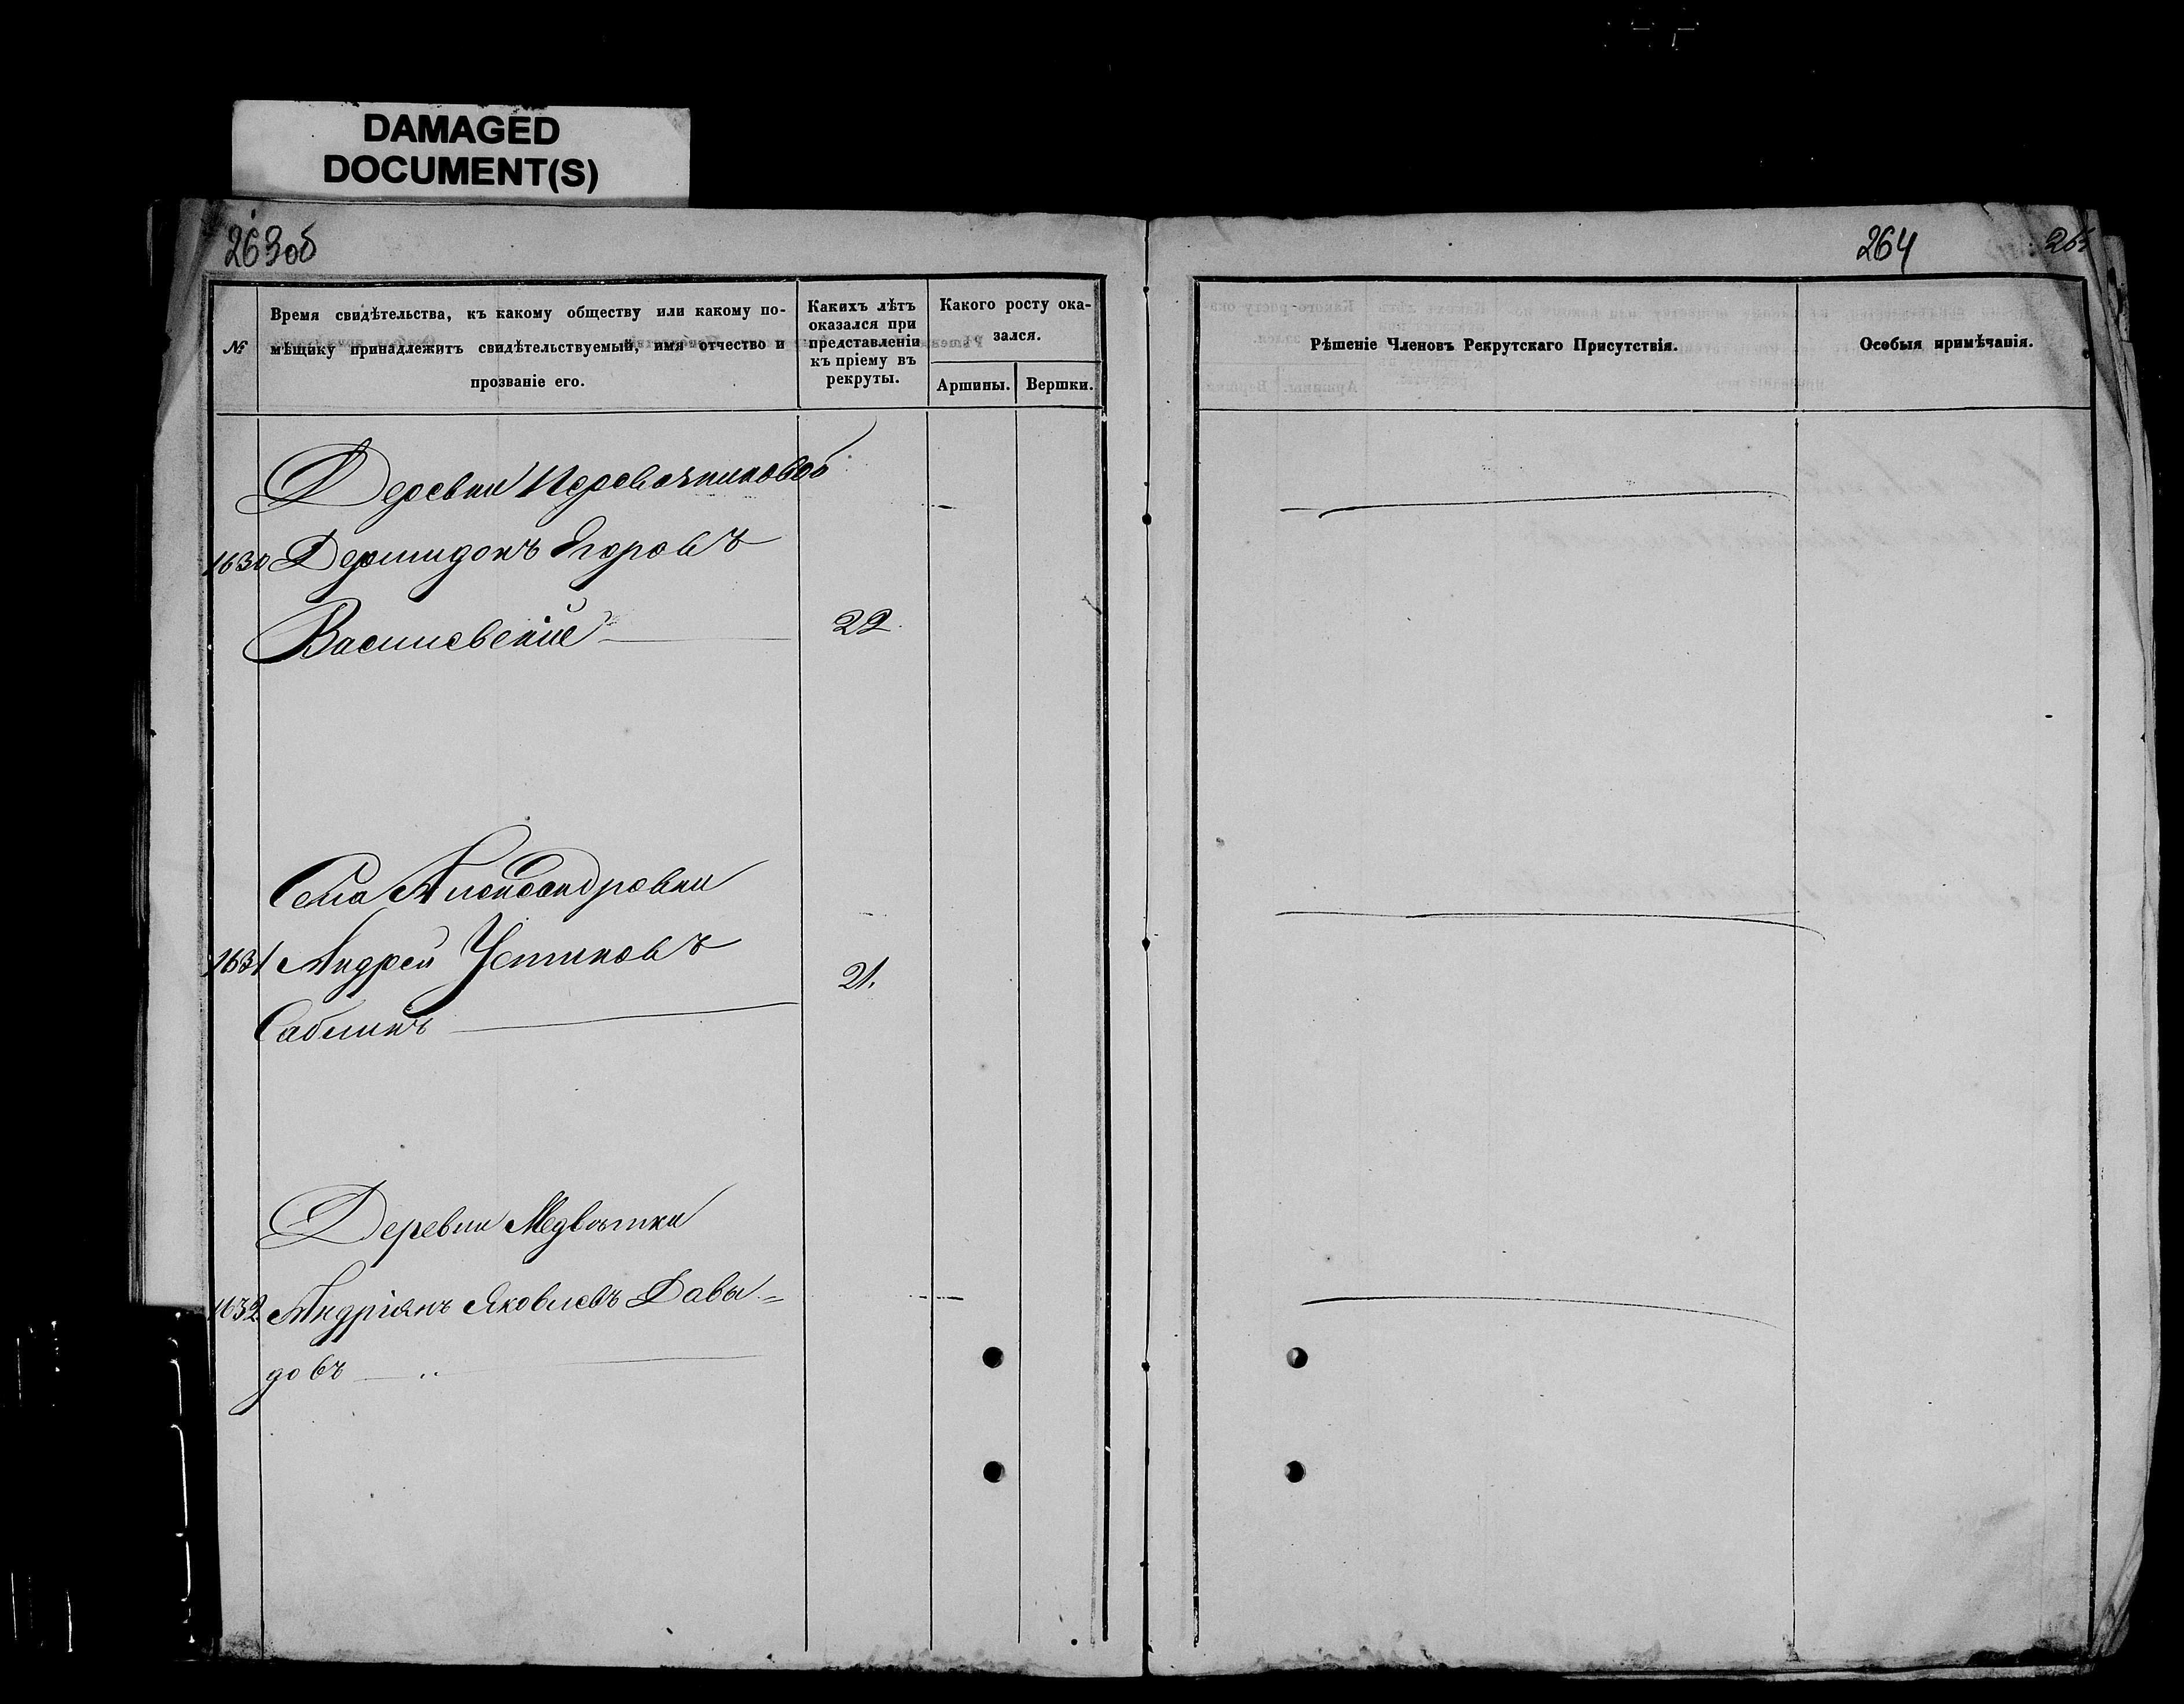 DAMAGED
DOCUMENT(S)
263об
264
№
Время свидѣтельства, къ какому обществу или какому по-
мѣщику принадлежитъ свидѣтельствуемый, имя отчество и
прозваніе его.
Какихъ лѣтъ
оказался при
представленіи
къ пріему въ
рекруты.
Какого росту ока-
зался.
Аршины.
Вершки.
Рѣшеніе Членовъ Рекрутскаго Присутствія.
Особыя примѣчанія.
Деревни
1630 Дермидонъ Егоровъ
Василевскій 22.
Села Александровки
1631 Андрей Устиновъ 21.
Саблинъ
Деревни Медвѣтки
1632 Андріянъ Яковлевъ Давы=
довъ